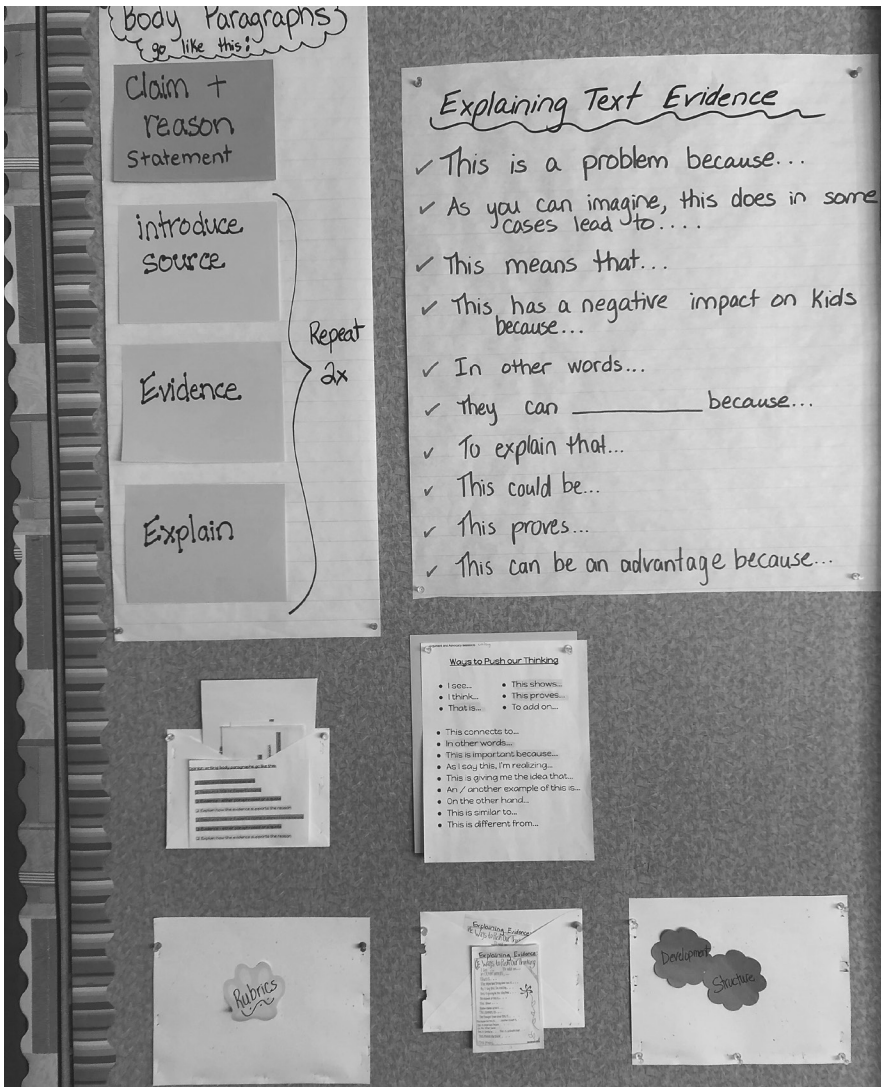 Body Paragraphs
go like this:
Claim +
reason
Statement
introduce
source
Evidence
Explain
Repeat
2x
Explaining Text Evidence
✓ This is a problem because...
✓ As you can imagine, this does in some
cases lead to....
✓ This means that...
✓ This has a negative impact on kids
because...
✓ In other words...
✓ They can __________ because...
✓ To explain that...
✓ This could be...
✓ This proves...
✓ This can be an advantage because...
Ways to Push our Thinking
• I see...
• I think...
• That is...
• This shows...
• This proves...
• To add on...
• This connects to...
• In other words...
• This is important because...
• As I say this, I'm realizing...
• This is giving me the idea that...
• An / another example of this is...
• On the other hand...
• This is similar to...
• This is different from...
Rubrics
Explaining Evidence
Explaining Evidence
Development
Structure